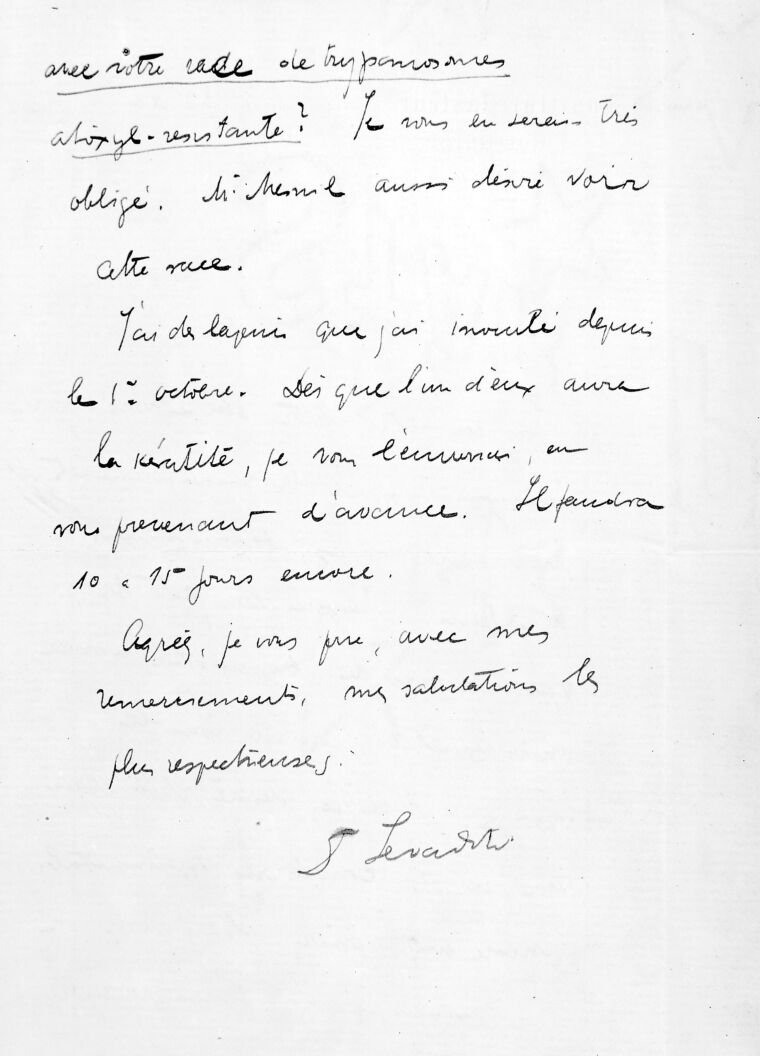 avec votre race de trypanosomes
atoxyl-resistante? Je vous en serais très
obligé. Mr Mesnil aussi désire voir
cette race.
J'ai des lapins que j'ai inoculé depuis
le 1er octobre. Dès que l'un d'eux aura
la kératite, je vous l'enverrai, en
vous prevenant d'avance. Il faudra
10 à 15 jours encore.
Agréez, je vous prie, avec mes
remerciements, mes salutations les
plus respectueuses.
Levaditi